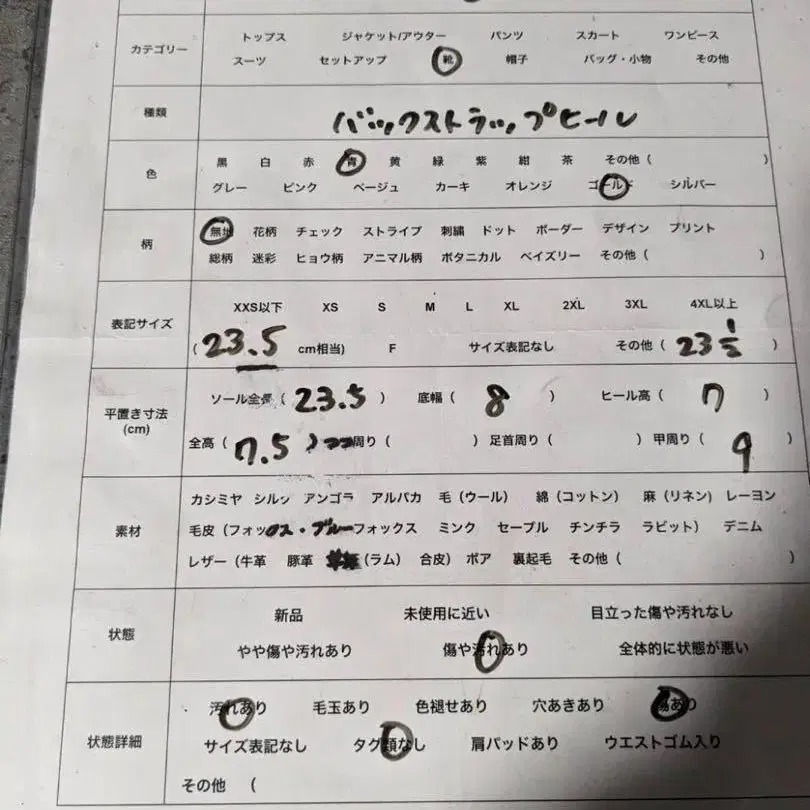 カテゴリー
トップス ジャケット/アウター パンツ スカート ワンピース
スーツ セットアップ 靴 帽子 バッグ・小物 その他
種類
バックストラップヒール
色
黒 白 赤 青 黄 緑 紫 紺 茶 その他 ( )
グレー ピンク ベージュ カーキ オレンジ ゴールド シルバー
柄
無地 花柄 チェック ストライプ 刺繍 ドット ボーダー デザイン プリント
総柄 迷彩 ヒョウ柄 アニマル柄 ボタニカル ペイズリー その他 ( )
表記サイズ
XXS以下 XS S M L XL 2XL 3XL 4XL以上
( 23.5 cm相当) F サイズ表記なし その他 ( 23 1/2 )
平置き寸法
(cm)
ソール全長 ( 23.5 ) 底幅 ( 8 ) ヒール高 ( 7 )
全高 ( 7.5 ) 周り ( ) 足首周り ( ) 甲周り ( 9 )
素材
カシミヤ シルク アンゴラ アルパカ 毛 (ウール) 綿 (コットン) 麻 (リネン) レーヨン
毛皮 (フォックス・ブルーフォックス ミンク セーブル チンチラ ラビット) デニム
レザー (牛革 豚革 (ラム) 合皮) ボア 裏起毛 その他 ( )
状態
新品 未使用に近い 目立った傷や汚れなし
やや傷や汚れあり 傷や汚れあり 全体的に状態が悪い
状態詳細
汚れあり 毛玉あり 色褪せあり 穴あきあり 傷あり
サイズ表記なし タグ類なし 肩パッドあり ウエストゴム入り
その他 (